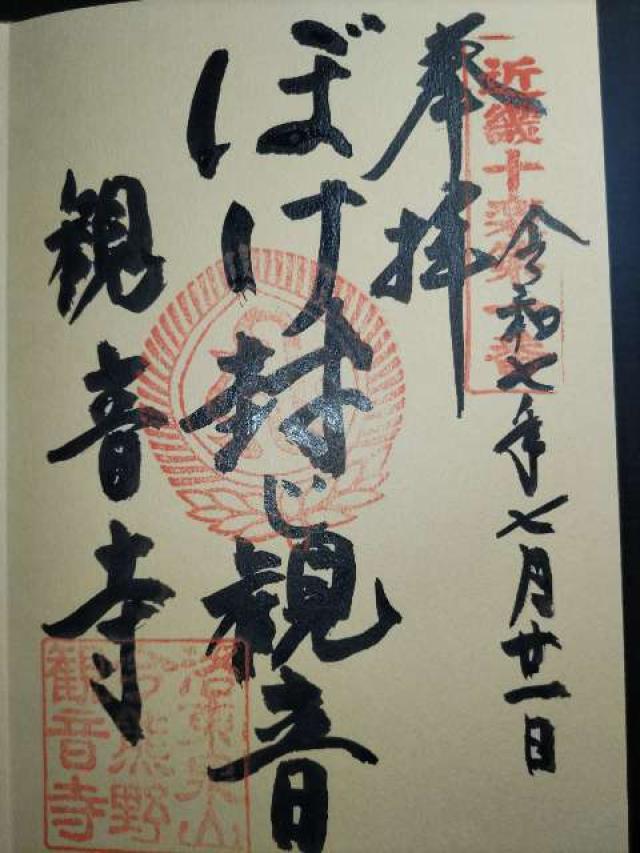 奉拝
近畿十楽第一番
令和七年七月廿一日
ぼけ封じ観音
観音寺
洛東泉山
今熊野
観音寺